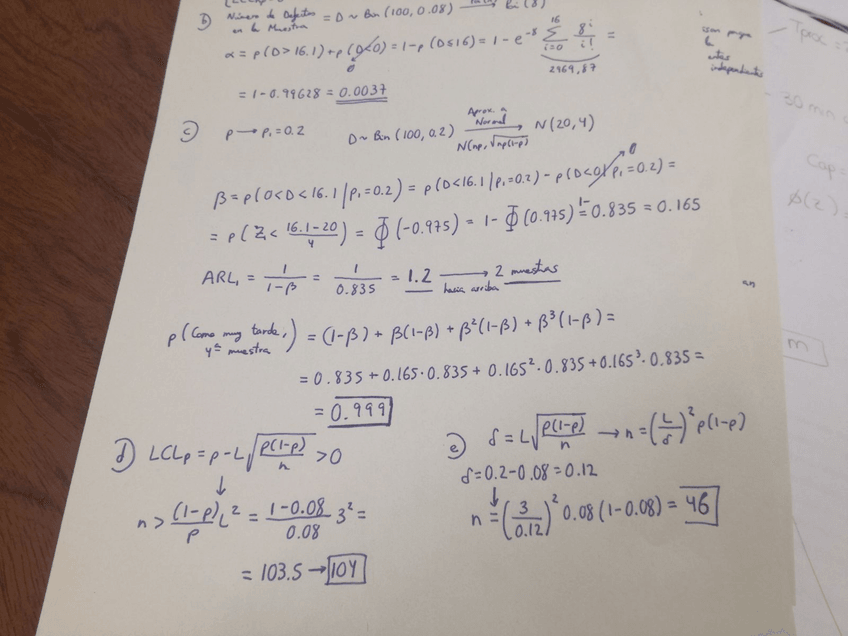 b) Número de Defectos en la Muestra = D ~ Bin (100, 0.08) → Poi (8)
α = P(D > 16.1) + P(D<0) = 1 - P(D≤16) = 1 - e^-8 Σ_{i=0}^{16} 8^i/i! =
0
2969,87
= 1 - 0.99628 = 0.0037
c) P → P₁ = 0.2 D ~ Bin (100, 0.2) → N(20, 4)
Aprox. a Normal
N(np, √np(1-p))
β = P(0<D<16.1 | P₁=0.2) = P(D<16.1 | P₁=0.2) - P(D<0 | P₁=0.2) =
0
= P(Z < (16.1-20)/4) = Φ(-0.975) = 1 - Φ(0.975) = 1- 0.835 = 0.165
ARL₁ = 1/(1-β) = 1/0.835 = 1.2 → 2 muestras
hacia arriba
P(Como muy tarde, 4ª muestra) = (1-β) + β(1-β) + β²(1-β) + β³(1-β) =
= 0.835 + 0.165·0.835 + 0.165²·0.835 + 0.165³·0.835 =
= 0.999
d) LCLp = p - L√(p(1-p)/n) > 0
↓
n > (1-p)/p L² = (1-0.08)/0.08 3² =
= 103.5 → 104
e) δ = L√(p(1-p)/n) → n = (L/δ)² p(1-p)
δ = 0.2 - 0.08 = 0.12
↓
n = (3/0.12)² 0.08 (1-0.08) = 46
independientes
an
30 min
Cap =
Φ(z) =
m